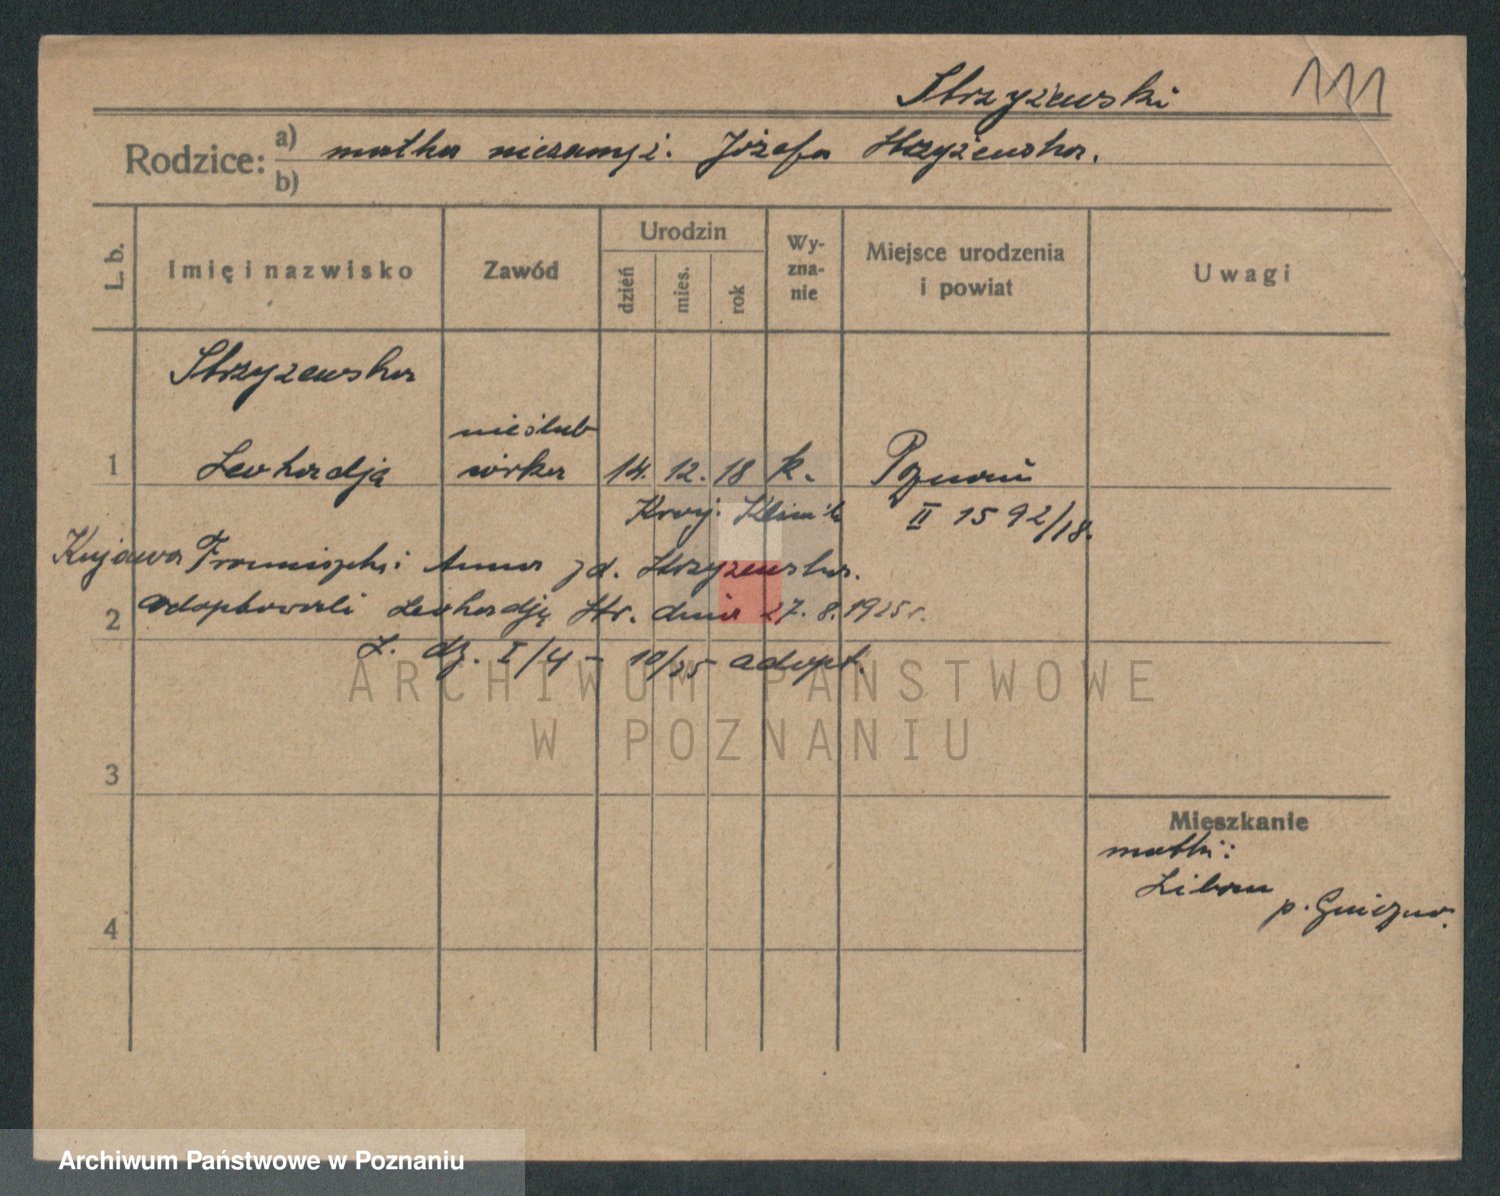 Strzyżewski 111
Rodzice: a) matka niezamęż. Józefa Strzyżewska.
b)
L. b.
Imię i nazwisko
Zawód
Urodzin
dzień
mies.
rok
Wy-
zna-
nie
Miejsce urodzenia
i powiat
Uwagi
Strzyżewska
nieślub
1 Leokadja córka 14. 12. 18 k. Poznań
Kraj. Klinik II 1592/18.
Kujawa Franciszek i Anna zd. Strzyżewska.
2 adoptowali Leokadję Str. dnia 27.8.1925 r.
L. dz. I/4 - 10/25 adopt.
ARCHIWUM PAŃSTWOWE
W POZNANIU
3
Mieszkanie
matki:
Libau
p. Gniezno.
4
Archiwum Państwowe w Poznaniu